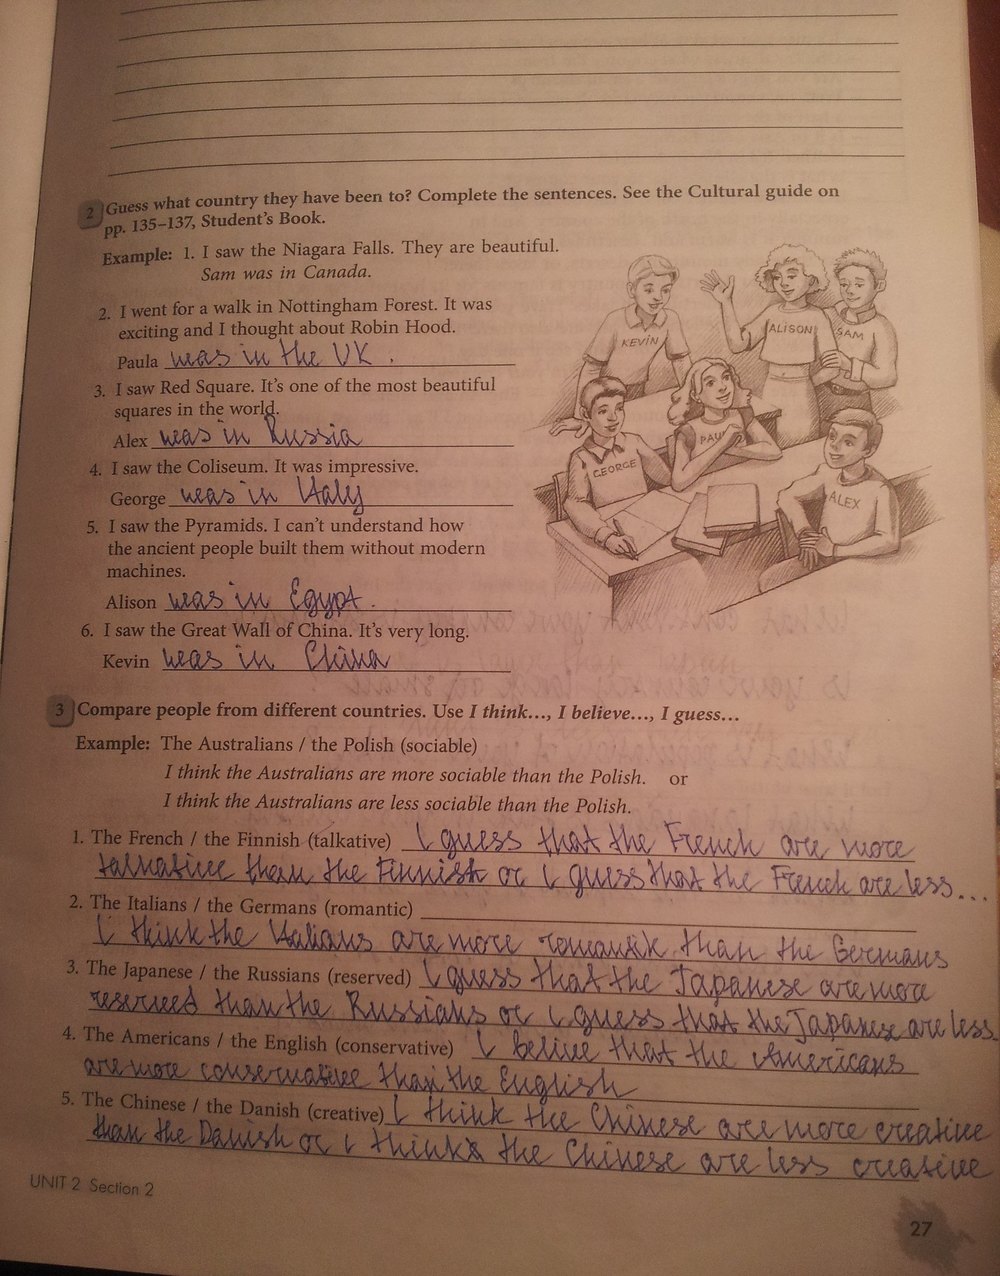 2 Guess what country they have been to? Complete the sentences. See the Cultural guide on
pp. 135–137, Student's Book.
Example: 1. I saw the Niagara Falls. They are beautiful.
Sam was in Canada.
2. I went for a walk in Nottingham Forest. It was
exciting and I thought about Robin Hood.
Paula was in the UK.
3. I saw Red Square. It's one of the most beautiful
squares in the world.
Alex was in Russia
4. I saw the Coliseum. It was impressive.
George was in Italy
5. I saw the Pyramids. I can't understand how
the ancient people built them without modern
machines.
Alison was in Egypt.
6. I saw the Great Wall of China. It's very long.
Kevin was in China
KEVIN
ALISON
SAM
GEORGE
PAU
ALEX
3 Compare people from different countries. Use I think..., I believe..., I guess...
Example: The Australians / the Polish (sociable)
I think the Australians are more sociable than the Polish. or
I think the Australians are less sociable than the Polish.
1. The French / the Finnish (talkative) I guess that the French are more
talkative than the Finnish or I guess that the French are less...
2. The Italians / the Germans (romantic)
I think the Italians are more romantik than the Germans
3. The Japanese / the Russians (reserved) I guess that the Japanese are more
reserved than the Russians or I guess that the Japanese are less
4. The Americans / the English (conservative) I belive that the Americans
are more conservative than the English
5. The Chinese / the Danish (creative) I think the Chinese are more creative
than the Danish or I think the Chinese are less creative
UNIT 2 Section 2
27